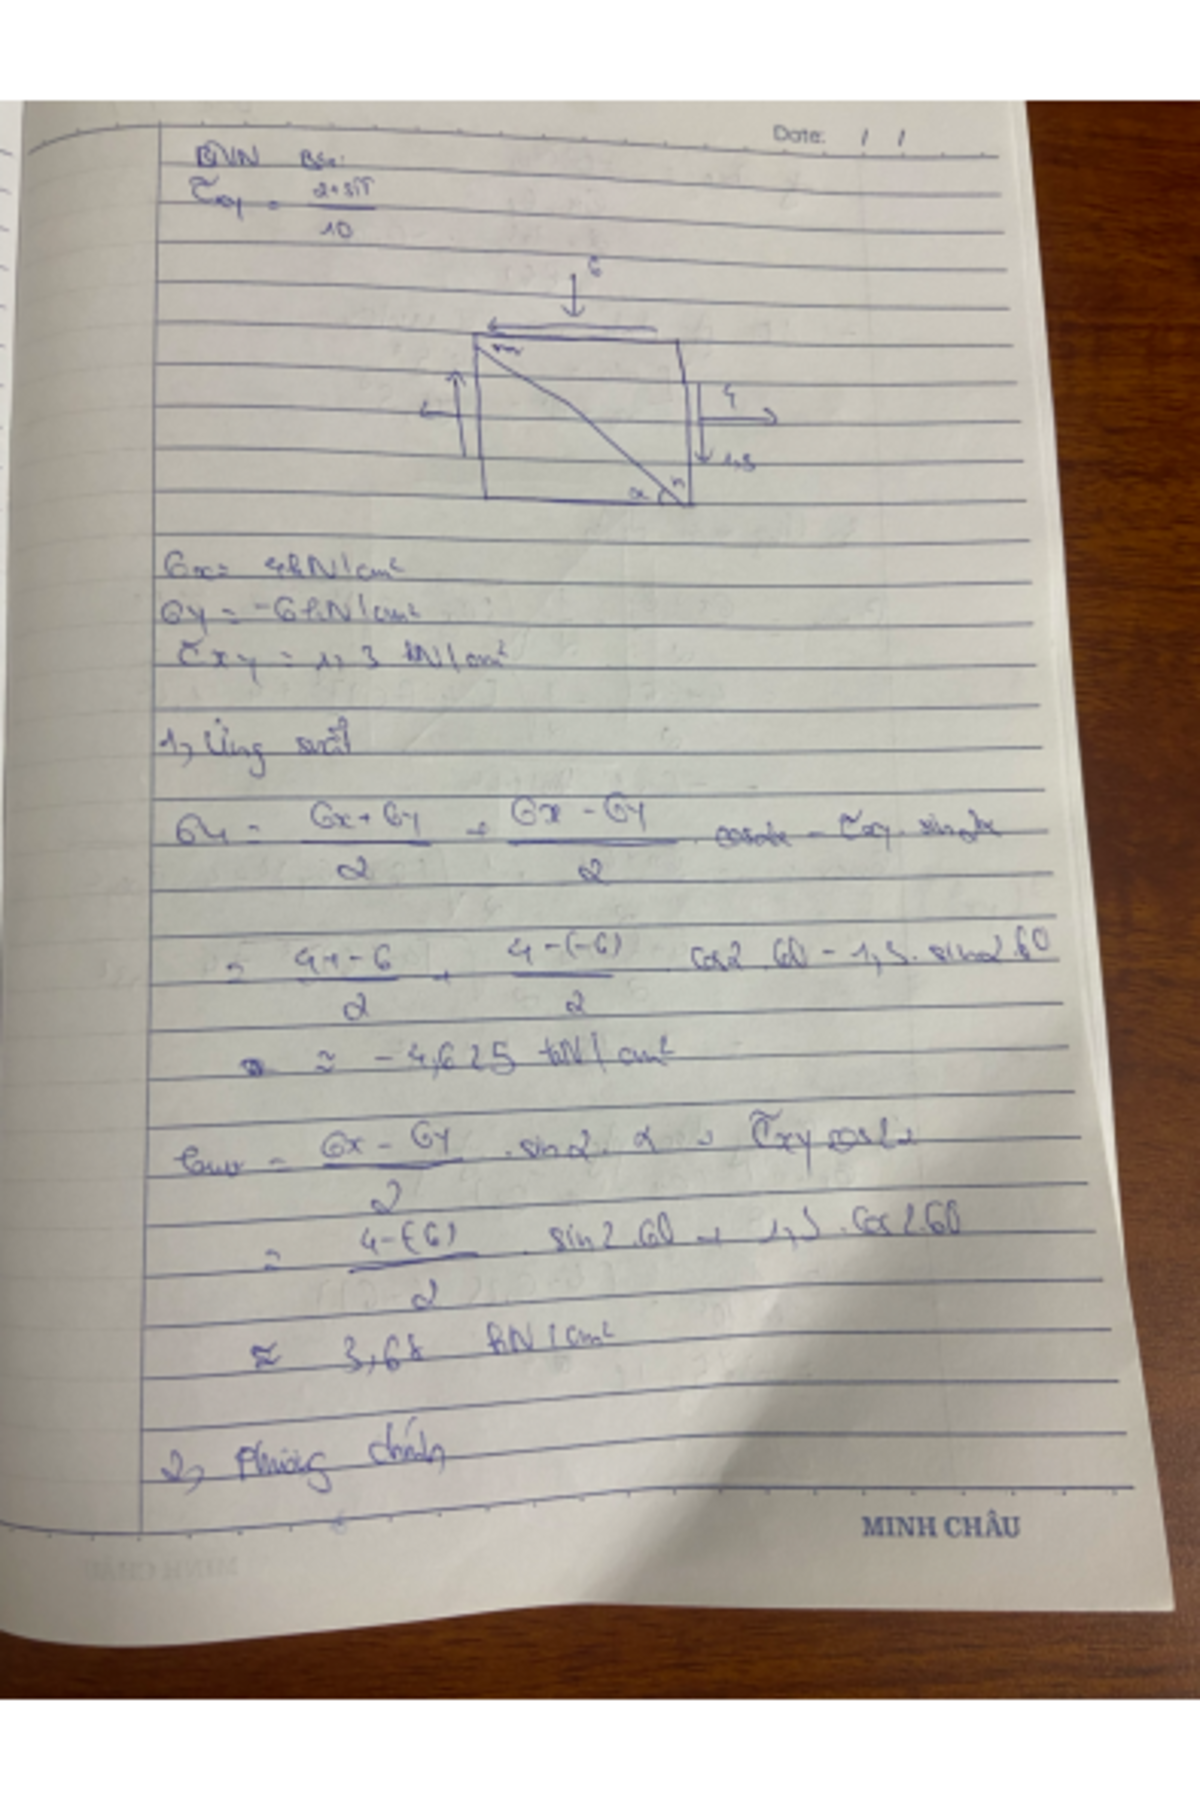 Date: / /
BVN
τxy = 2+STT
10
6
m
4
1,3
α n
σx = 4kN/cm²
σy = -6kN/cm²
τxy = 1,3 kN/cm²
1, Ứng suất
σu = σx + σy / 2 + σx - σy / 2 . cos2α - τxy . sin2α
= 4 + -6 / 2 + 4 - (-6) / 2 . cos2.60 - 1,3. sin2.60
≈ -4,625 kN/cm²
τuv = σx - σy / 2 . sin2.α + τxy cos2α
= 4-(-6) / 2 . sin2.60 + 1,3.cos2.60
≈ 3,68 kN/cm²
2, Phương chính
MINH CHÂU